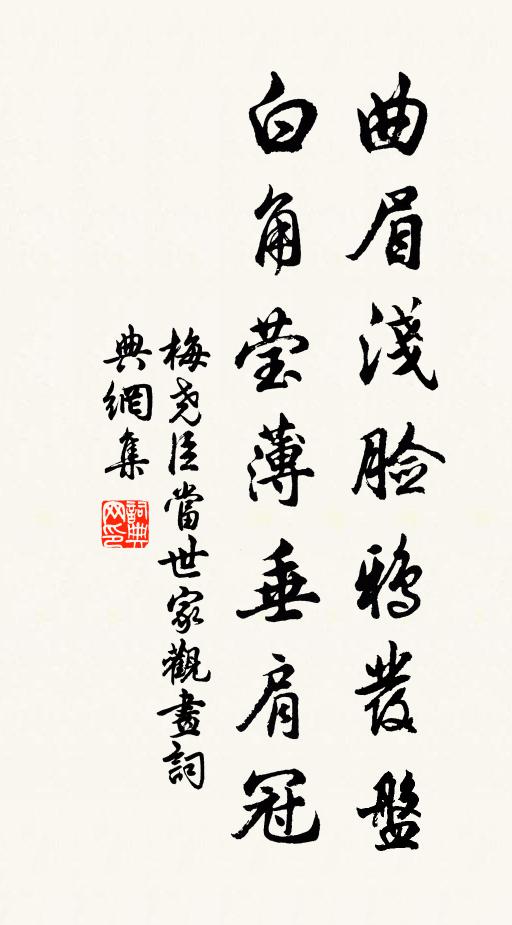 曲眉淺脸鴉發盤
白角莹薄垂肩冠
梅尧臣當世家觀畫詞
典網集
詞典
网印